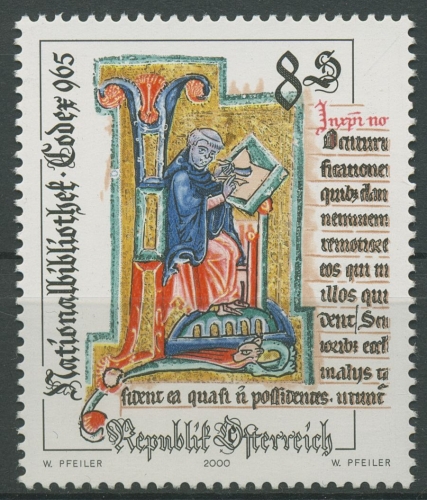 Nationalbibliothek · Codex 965
8 S
Inxpi no
ficatione
quib; dam
nem
remotiore
eos qui in
illos qui
dent
malys ta
sident ea quasi n possidentes. utunt
Republik Österreich
W. PFEILER 2000 W. PFEILER